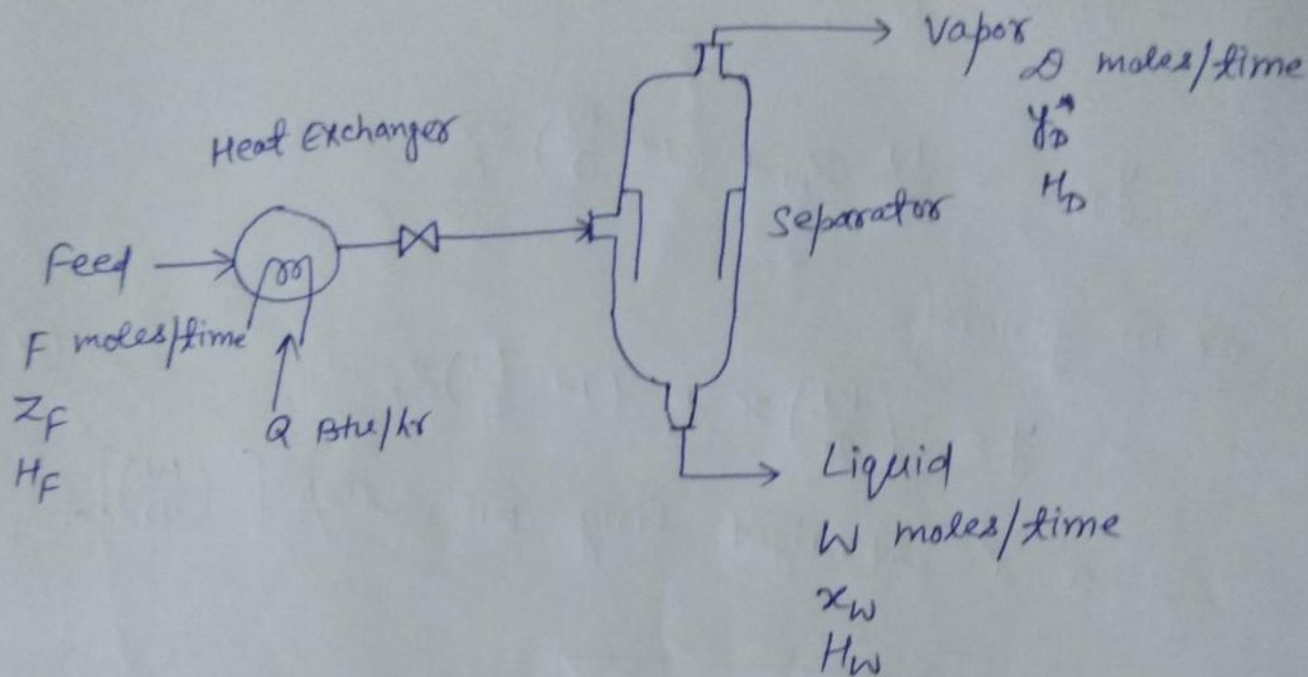 Vapor
D moles/time
y*D
HD
Heat Exchanger
Separator
Feed
F moles/time
ZF
HF
Q Btu/hr
Liquid
W moles/time
xW
HW